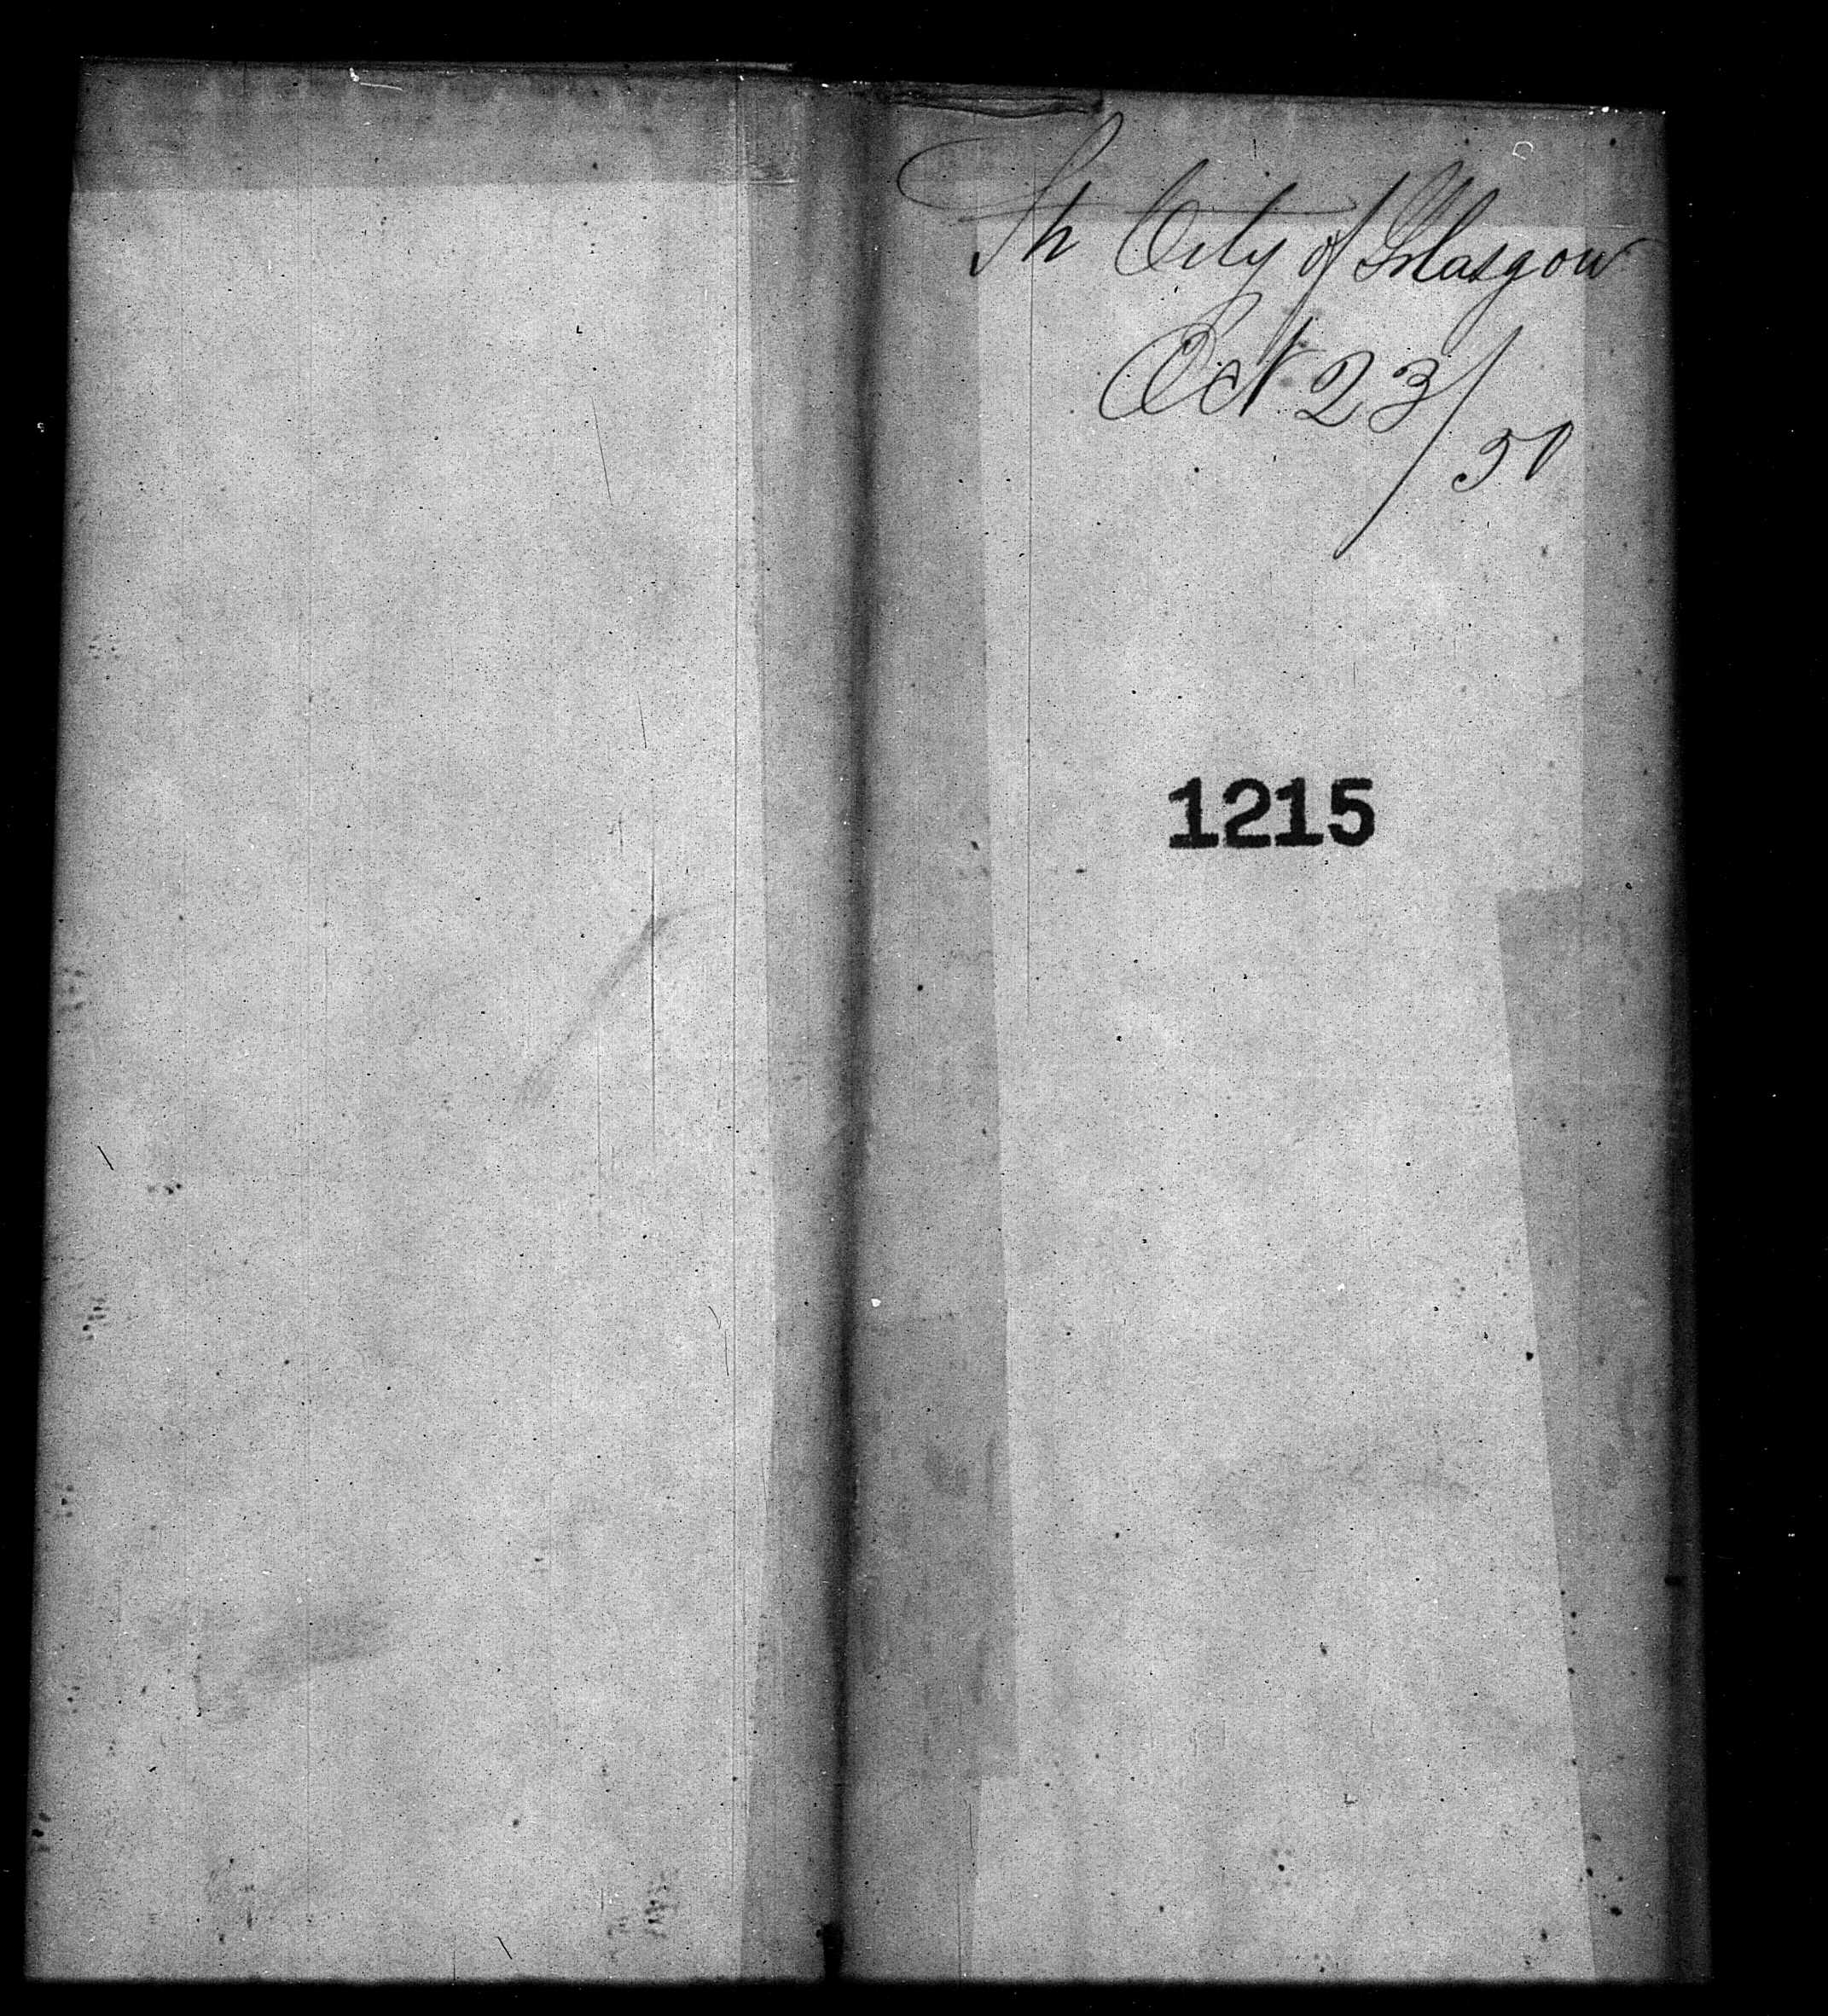 Sh City of Glasgow
Oct 23/50
1215